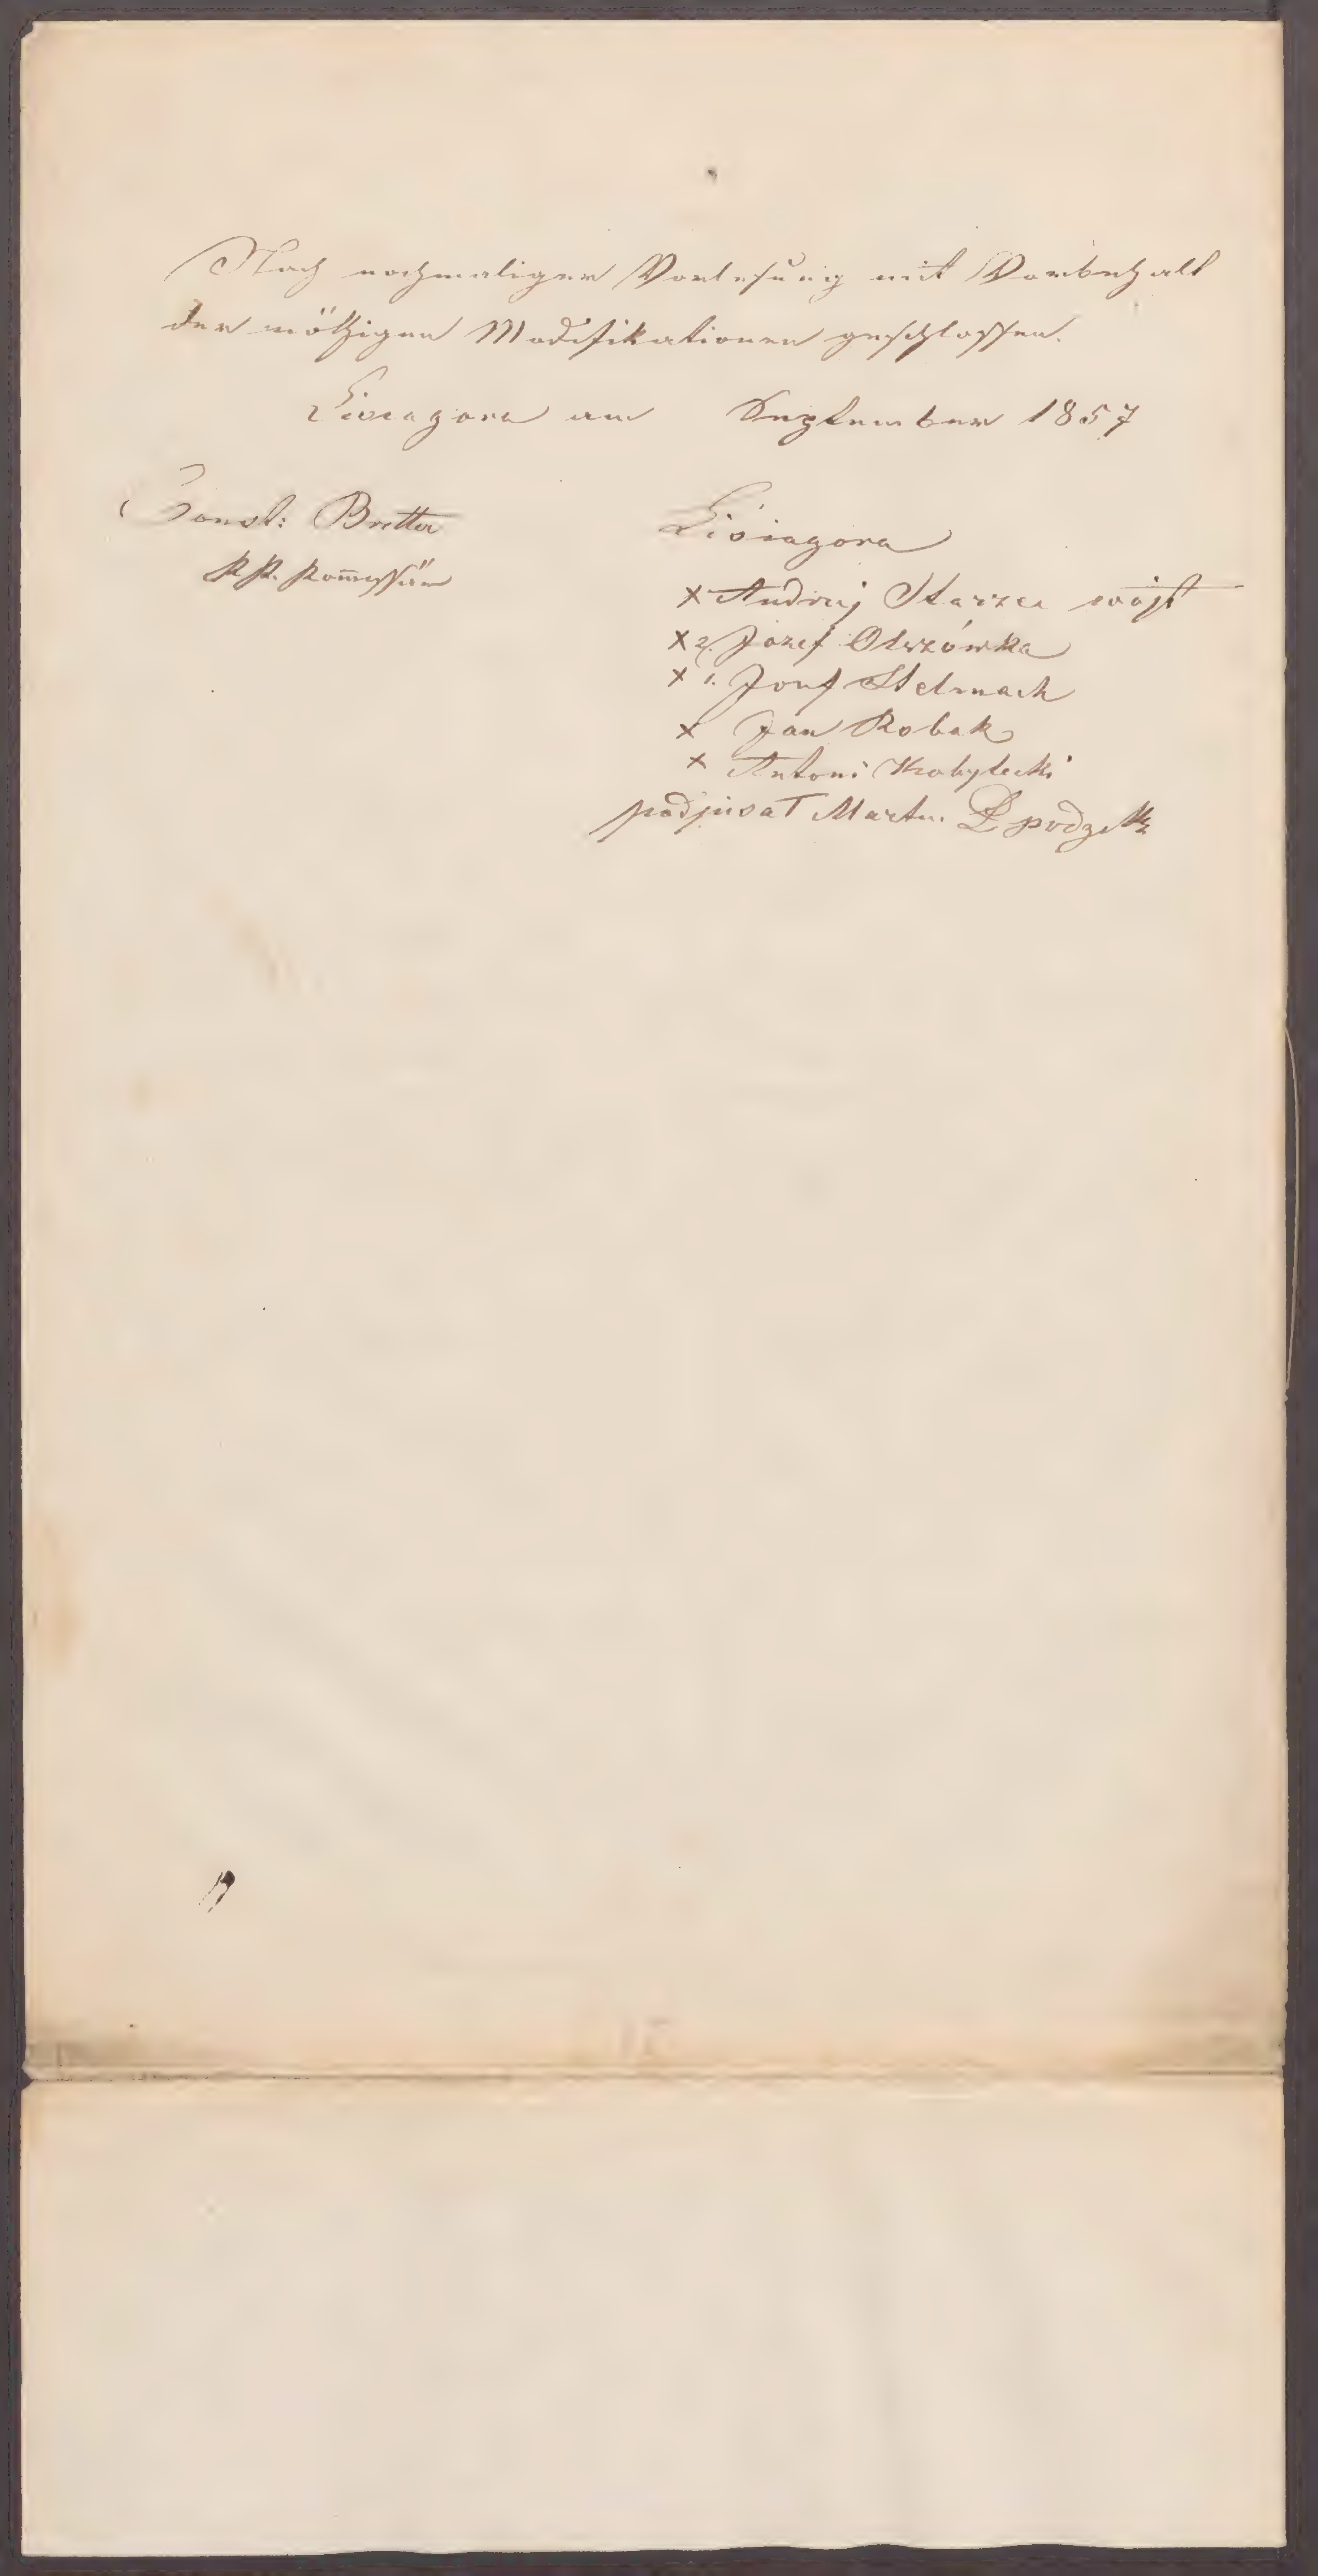 Nach nochmaliger Vorlesung mit Vorbehalt
der nöthigen Modifikationen geschlossen.
Lisiagora am September 1857
Const: Bretter
KK. Kom̄issär
Lisiagora
x Andrzej Starzec wójt
x 2. Jozef Olszówka
x 1. Josef Stelmach
x Jan Robak
x Antoni Kobyłecki
podpisał Martin